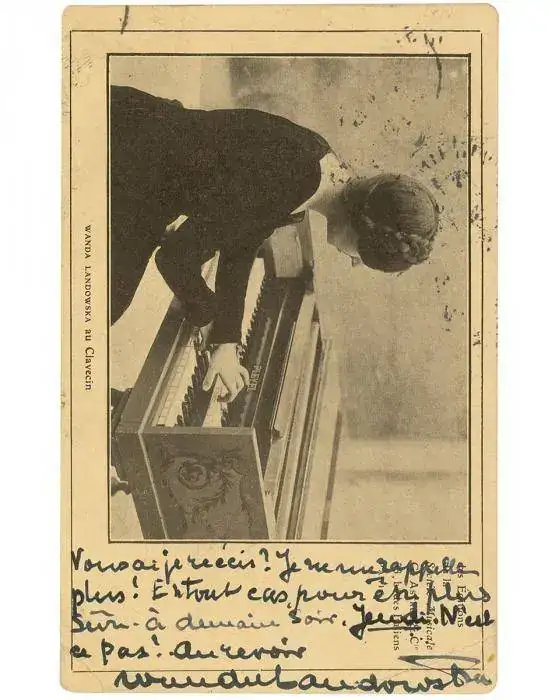 WANDA LANDOWSKA au Clavecin
PLEYEL
Vous ai-je récris? Je ne me rappelle
plus! En tout cas, pour être plus
Sûr - à demain Soir, Jeudi. N'est
ce pas? Au revoir
Wanda Landowska